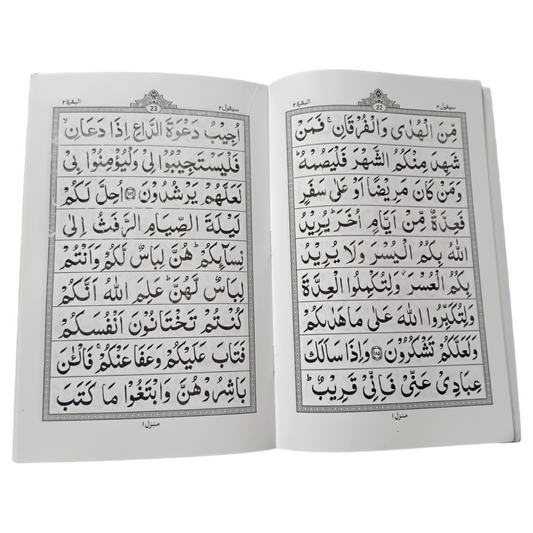 سیقول ۲
22
البقرة ۲
مِّنَ الْهُدٰی وَالْفُرْقَانِ ۚ فَمَنْ
شَهِدَ مِنْكُمُ الشَّهْرَ فَلْیَصُمْهُ ؕ
وَمَنْ كَانَ مَرِیْضًا اَوْ عَلٰی سَفَرٍ
فَعِدَّةٌ مِّنْ اَیَّامٍ اُخَرَ ؕ یُرِیْدُ
اللّٰهُ بِكُمُ الْیُسْرَ وَلَا یُرِیْدُ
بِكُمُ الْعُسْرَ ؗ وَلِتُكْمِلُوا الْعِدَّةَ
وَلِتُكَبِّرُوا اللّٰهَ عَلٰی مَا هَدٰىكُمْ
وَلَعَلَّكُمْ تَشْكُرُوْنَ ﴿۱۸۵﴾ وَاِذَا سَاَلَكَ
عِبَادِیْ عَنِّیْ فَاِنِّیْ قَرِیْبٌ ؕ
منزل ۱
سیقول ۲
23
البقرة ۲
اُجِیْبُ دَعْوَةَ الدَّاعِ اِذَا دَعَانِ ۙ
فَلْیَسْتَجِیْبُوْا لِیْ وَلْیُؤْمِنُوْا بِیْ
لَعَلَّهُمْ یَرْشُدُوْنَ ﴿۱۸۶﴾ اُحِلَّ لَكُمْ
لَیْلَةَ الصِّیَامِ الرَّفَثُ اِلٰی
نِسَآىِٕكُمْ ؕ هُنَّ لِبَاسٌ لَّكُمْ وَاَنْتُمْ
لِبَاسٌ لَّهُنَّ ؕ عَلِمَ اللّٰهُ اَنَّكُمْ
كُنْتُمْ تَخْتَانُوْنَ اَنْفُسَكُمْ
فَتَابَ عَلَیْكُمْ وَعَفَا عَنْكُمْ ۚ فَالْـٰٔنَ
بَاشِرُوْهُنَّ وَابْتَغُوْا مَا كَتَبَ
منزل ۱